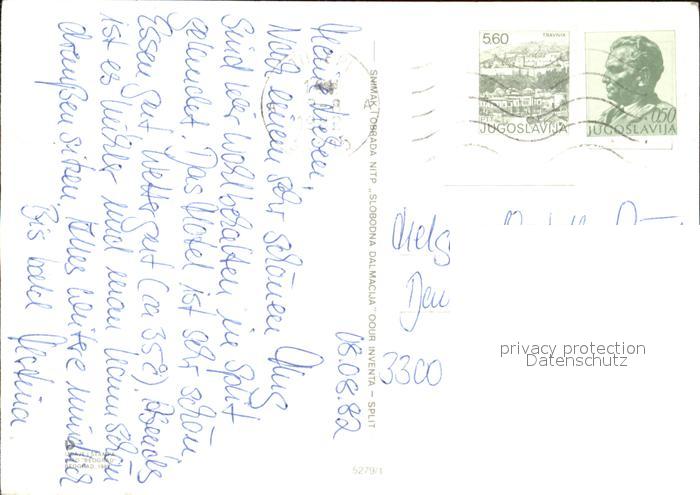 08.08.82
Meine Lieben,
Nach einem sehr schönen Flug
sind wir wohlbehalten in Split
gelandet. Das Hotel ist sehr schön
Essen gut Wetter gut (ca 35°). Abends
ist es kühler und man kann schön
draußen sitzen. Alles weitere mündlich
Bis bald Martina
SNIMAK I OBRADA NITP „SLOBODNA DALMACIJA" OOUR INVENTA – SPLIT
5279/1
5,60
TRAVNIK
JUGOSLAVIJA
0,50
JUGOSLAVIJA
3300
privacy protection
Datenschutz